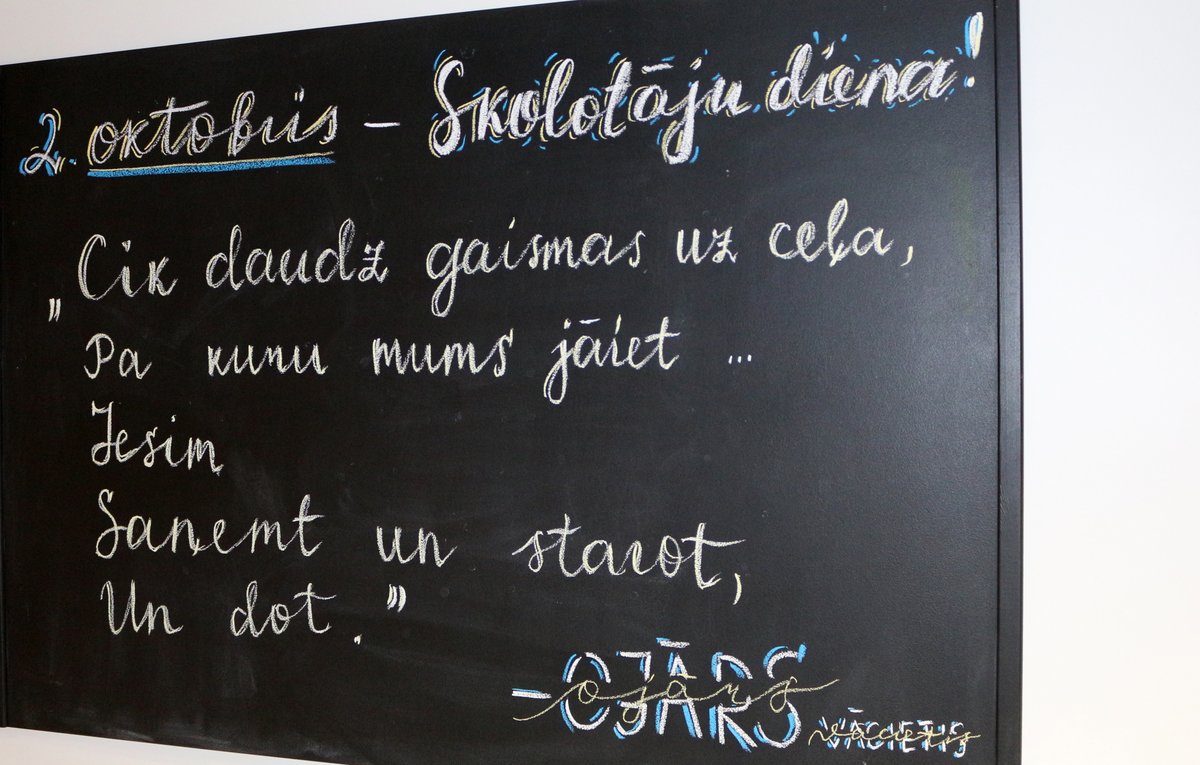 2. oktobris – Skolotāju diena!
"Cik daudz gaismas uz ceļa,
Pa kuru mums jāiet ...
Iesim
Saņemt un starot,
Un dot."
– OJĀRS
VĀCIETIS